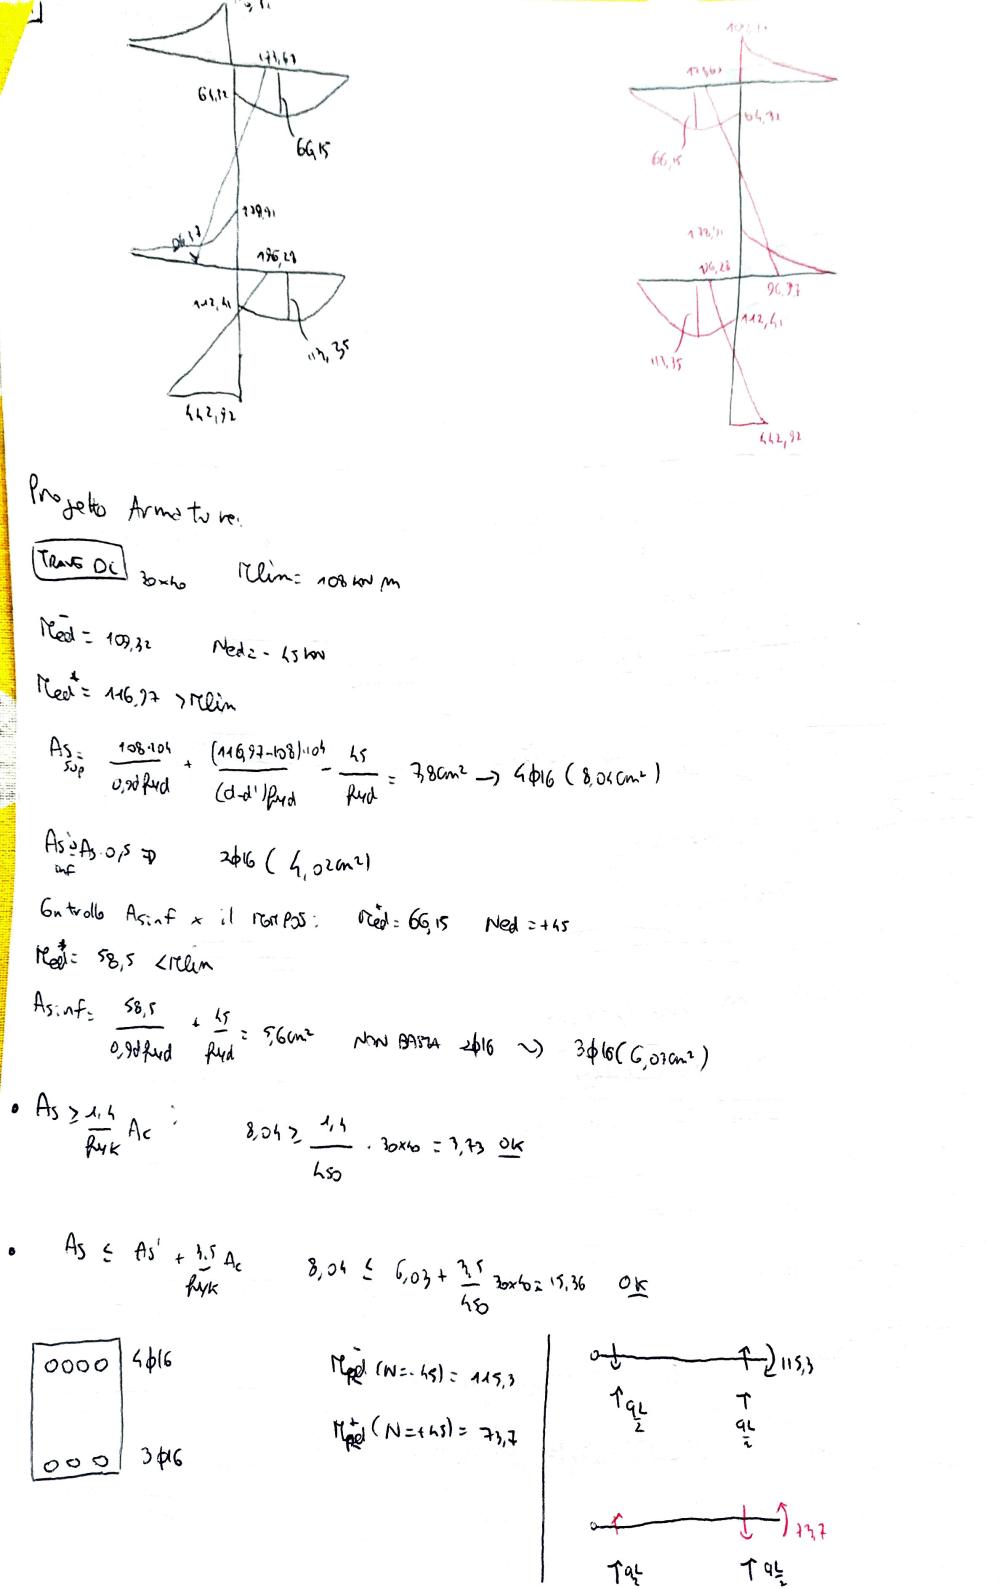 173,63
64,32
66,15
138,91
96,97
196,28
112,41
113,35
442,92
109,32
173,63
64,31
66,15
138,91
196,28
96,97
112,41
113,35
442,92
Progetto Armature:
TRAVE DC 30x40 Mlim= 108 kN m
Med⁻ = 109,32 Ned = - 45 kN
Med* = 116,97 > Mlim
As sup = 108·10⁴ / 0,9d fyd + (116,97-108)·10⁴ / (d-d')fyd - 45 / fyd = 7,8cm² → 4ϕ16 (8,04cm²)
As inf ≥ As·0,5 ⇒ 2ϕ16 (4,02cm²)
Controllo As inf x il mom pos: Med⁺ = 66,15 Ned = +45
Med* = 58,5 < Mlim
As inf = 58,5 / 0,9d fyd + 45 / fyd = 5,6cm² NON BASTA 2ϕ16 ~> 3ϕ16 (6,03cm²)
• As ≥ 1,4 / fyk Ac : 8,04 ≥ 1,4 / 450 · 30x40 = 3,73 OK
• As ≤ As' + 3,5 / fyk Ac 8,04 ≤ 6,03 + 3,5 / 450 30x40 = 15,36 OK
4ϕ16
Mrd⁻ (N=-45) = 115,3
115,3
qL/2 qL/2
Mrd⁺ (N=+45) = 73,7
3ϕ16
73,7
qL/2 qL/2